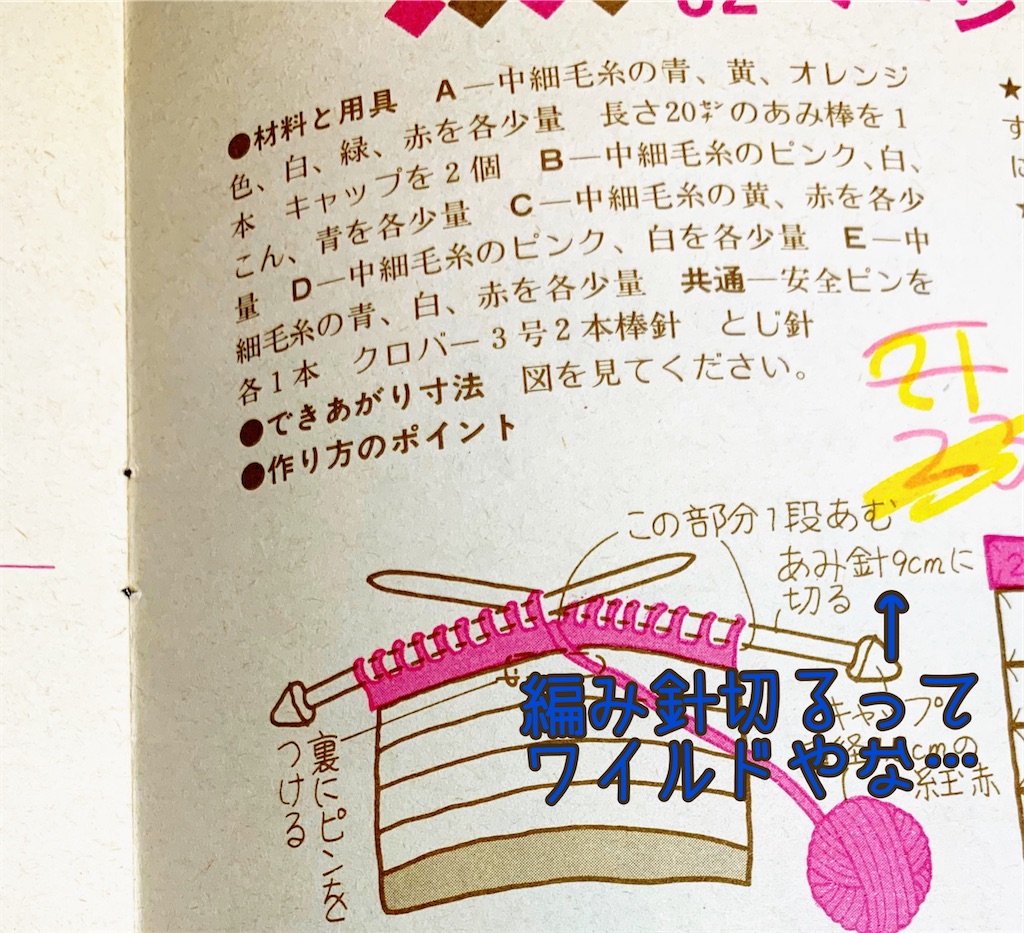 ●材料と用具 A―中細毛糸の青、黄、オレンジ
色、白、緑、赤を各少量 長さ20㌢のあみ棒を1
本 キャップを2個 B―中細毛糸のピンク、白、
こん、青を各少量 C―中細毛糸の黄、赤を各少
量 D―中細毛糸のピンク、白を各少量 E―中
細毛糸の青、白、赤を各少量 共通―安全ピンを
各1本 クロバー3号2本棒針 とじ針
●できあがり寸法 図を見てください。
●作り方のポイント
21
23
この部分1段あむ
あみ針9cmに
切る
編み針切るって
ワイルドやな…
キャップ
cmの
赤
裏にピンを
つける